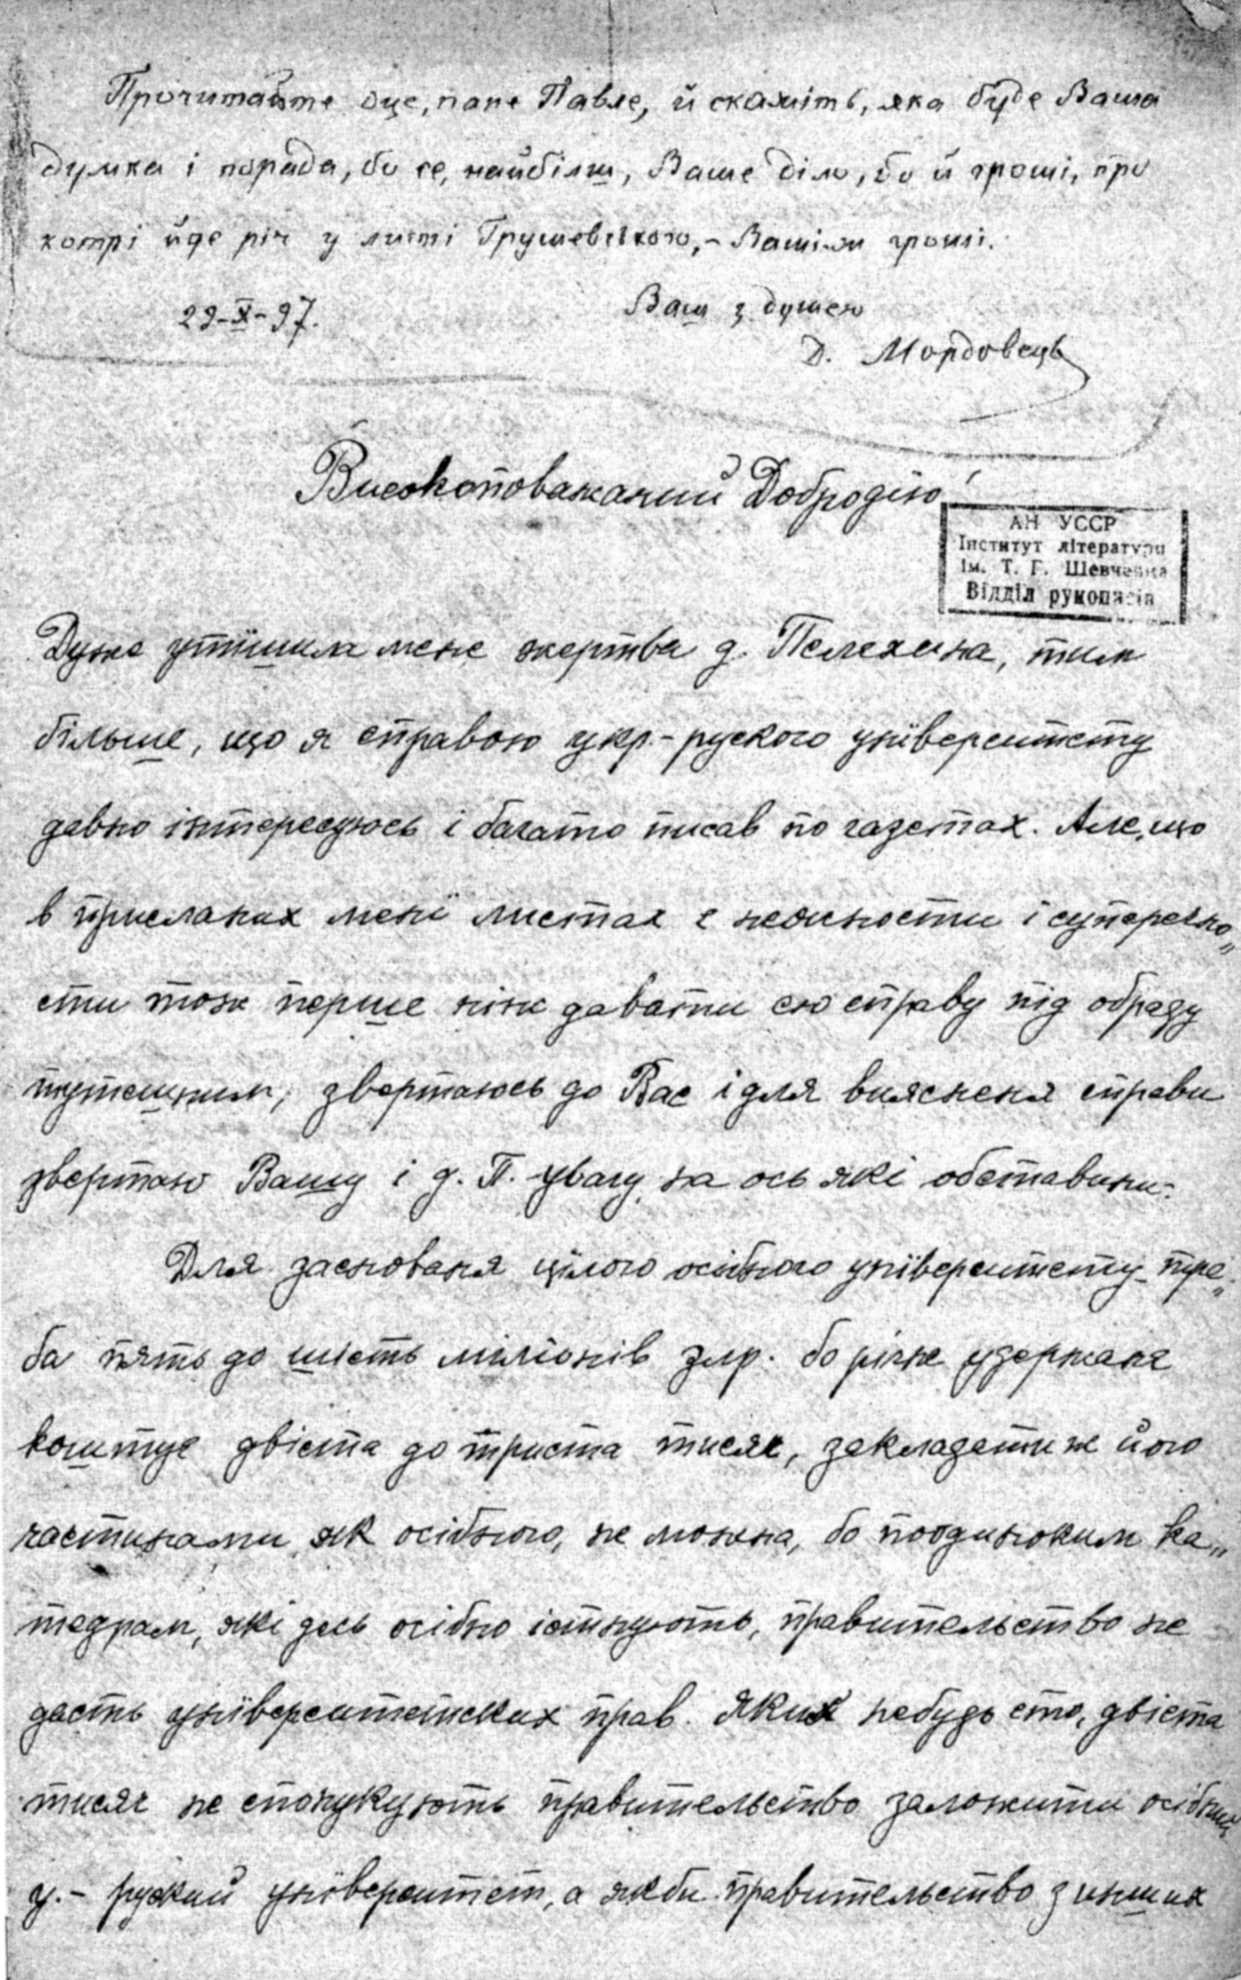 Прочитайте оце, пане Павле, й скажіть, яка буде Ваша
думка і порада, бо се, найбілш, Ваше діло, бо й гроші, про
котрі йде річ у листі Грушевського, – Ваші-ж гроші.
29-X-97.
Ваш з душею
Д. Мордовець
Високоповажаний Добродїю!
АН УССР
Інститут літератури
ім. Т. Г. Шевченка
Відділ рукописів
Дуже утїшила мене жертва д. Пелехина, тим
більше, що я справою укр.-руского унїверситету
давно інтересуюсь і багато писав по газетах. Але, що
в присланих менї листах є неясности і суперечно„
сти тож перше нїж давати сю справу під обраду
тутешним, звертаюсь до Вас і для вияснення справи
звертаю Вашу і д. П. увагу на ось які обставини:
Для заснованя цїлого осібного унїверситету тре„
ба пять до шість мілїонів злр. бо річне удержанє
коштує двіста до триста тисяч, закладати ж його
частинами, як осібного, не можна, бо поодиноким ка„
тедрам, які десь осібно істнують, правительство не
дасть унїверситетских прав. Яких небудь сто, двіста
тисяч не спонукують правительство заложити осібний
у.- руский унїверситет, а як би правительство з инших